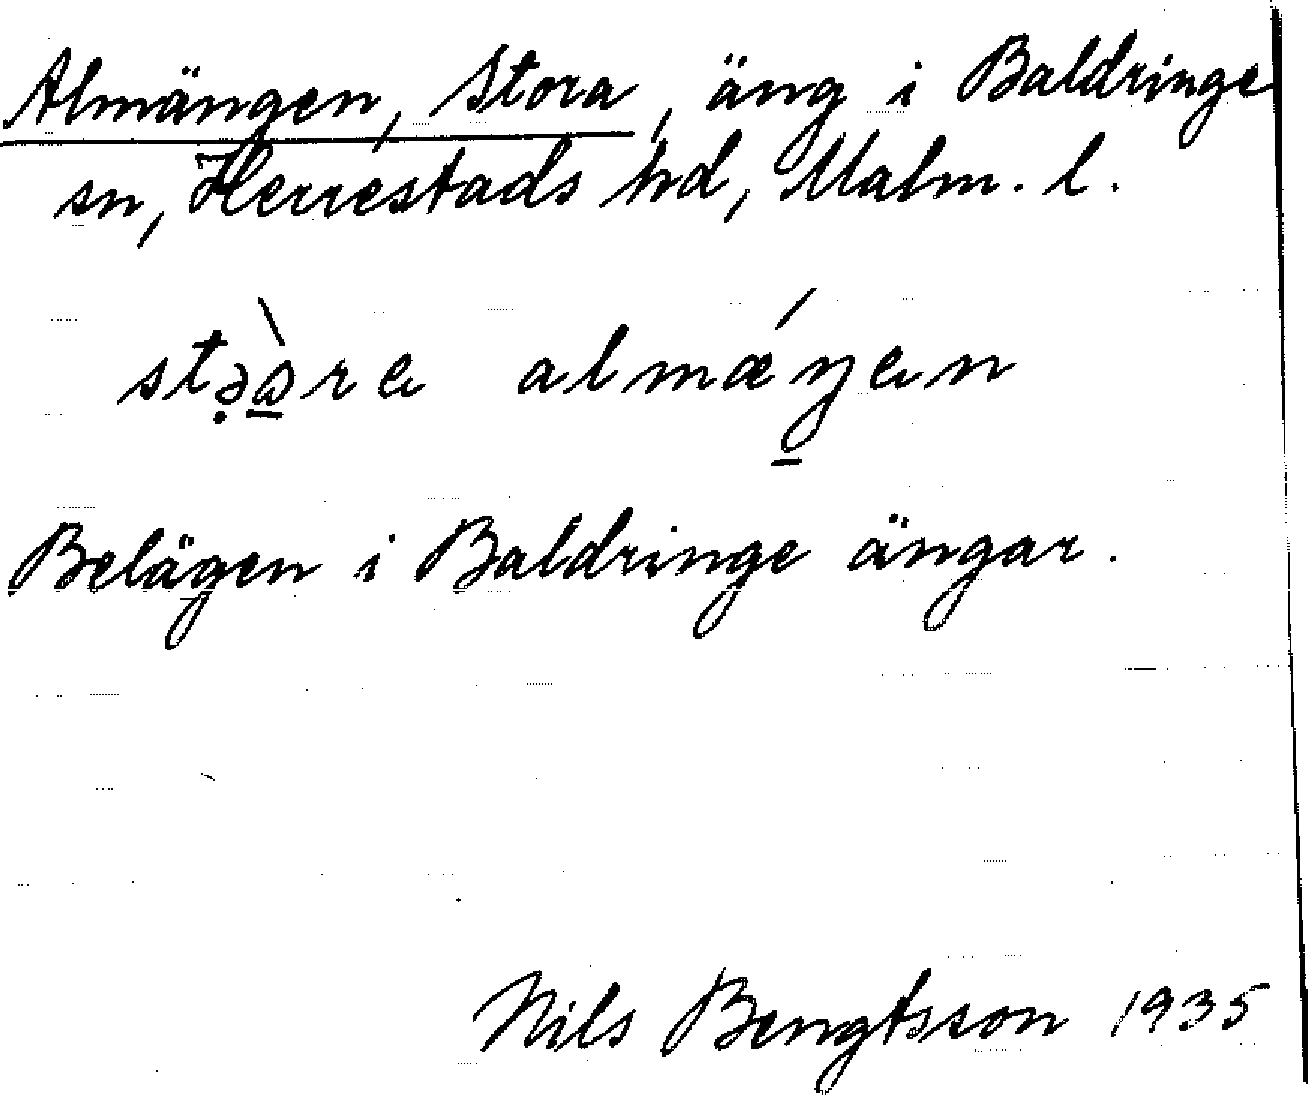 Almängen, Stora, äng i Baldringe
sn, Herrestads hd, Malm. l.
stə̣̀a̱re almǽŋ̱en
Belägen i Baldringe ängar.
Nils Bengtsson 1935